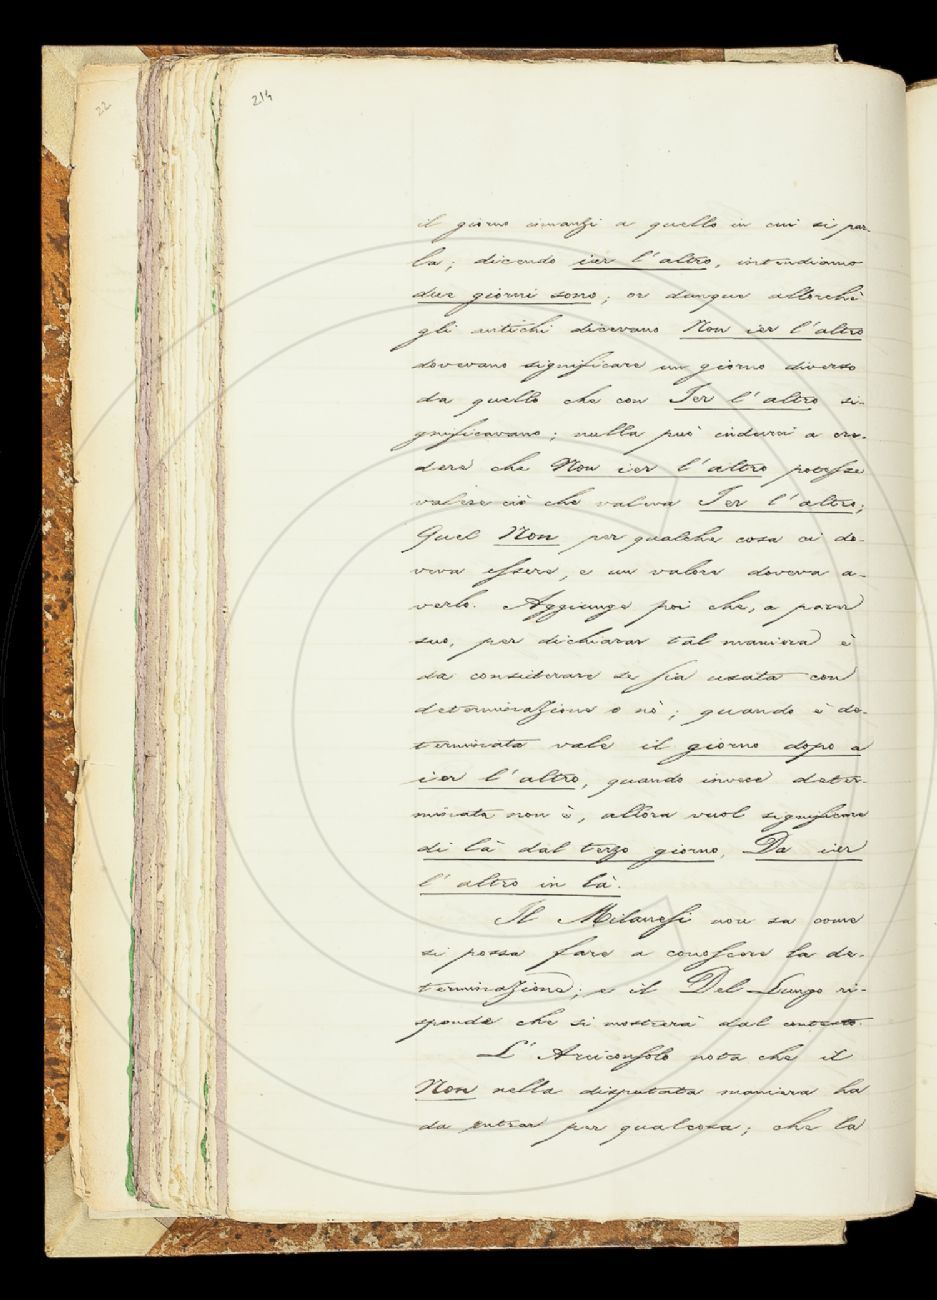 22
214
il giorno innanzi a quello in cui si par-
la; dicendo ier l'altro, intendiamo
due giorni sono; or dunque allorchè
gli antichi dicevano Non ier l'altro
dovevano significare un giorno diverso
da quello che con Ier l'altro si-
gnificavano; nulla può indurci a cre-
dere che Non ier l'altro potesse
valere ciò che valeva Ier l'altro;
Quel Non per qualche cosa ci do-
veva essere, e un valore doveva a-
verlo. Aggiunge poi che, a parer
suo, per dichiarar tal maniera è
da considerare se sia usata con
determinazione o nò; quando è de-
terminata vale il giorno dopo a
ier l'altro, quando invece deter-
minata non è, allora vuol significare
di là dal terzo giorno, Da ier
l'altro in là.
Il Milanesi non sa come
si possa fare a conoscere la de-
terminazione; e il Del Lungo ri-
sponde che si mostrerà dal contesto.
L'Arciconsolo nota che il
Non nella disputata maniera ha
da entrar per qualcosa; che la